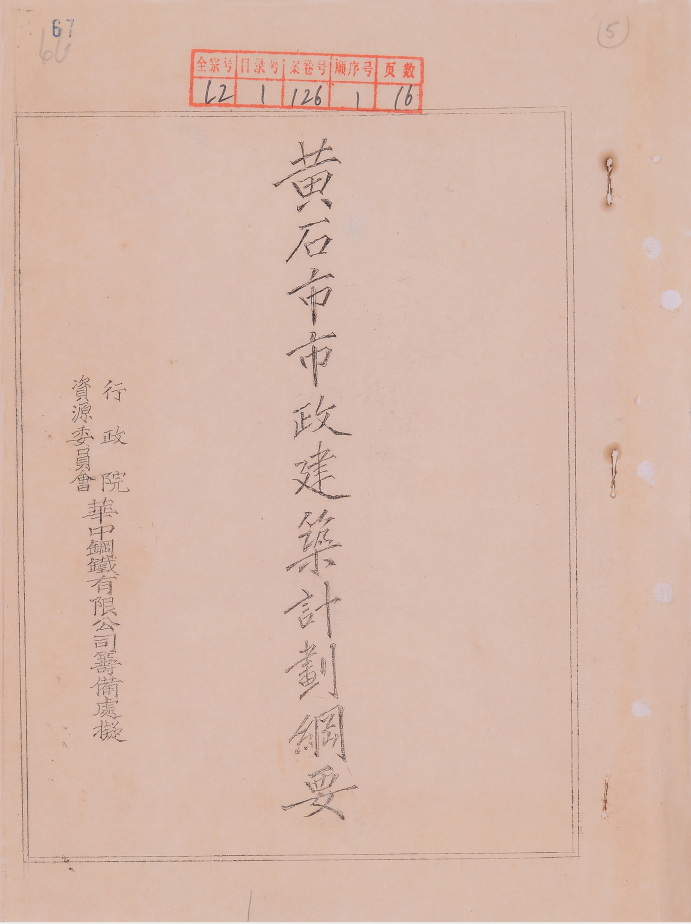 67
66
5
全宗号 目录号 案卷号 顺序号 页数
L2 1 126 1 16
黄石市市政建築計劃綱要
行政院
資源委員會
華中鋼鐵有限公司籌備處擬
1